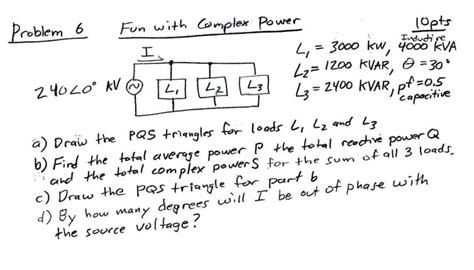 Problem 6 Fun with Complex Power 10pts
Inductive
L₁ = 3000 kW, 4000 KVA
L₂ = 1200 KVAR, θ = 30°
L₃ = 2400 KVAR, pf = 0.5
capacitive
I
240∠0° KV
L₁ L₂ L₃
a) Draw the PQS triangles for loads L₁ L₂ and L₃
b) Find the total average power P the total reactive power Q
and the total complex power S for the sum of all 3 loads.
c) Draw the PQS triangle for part b
d) By how many degrees will I be out of phase with
the source voltage?